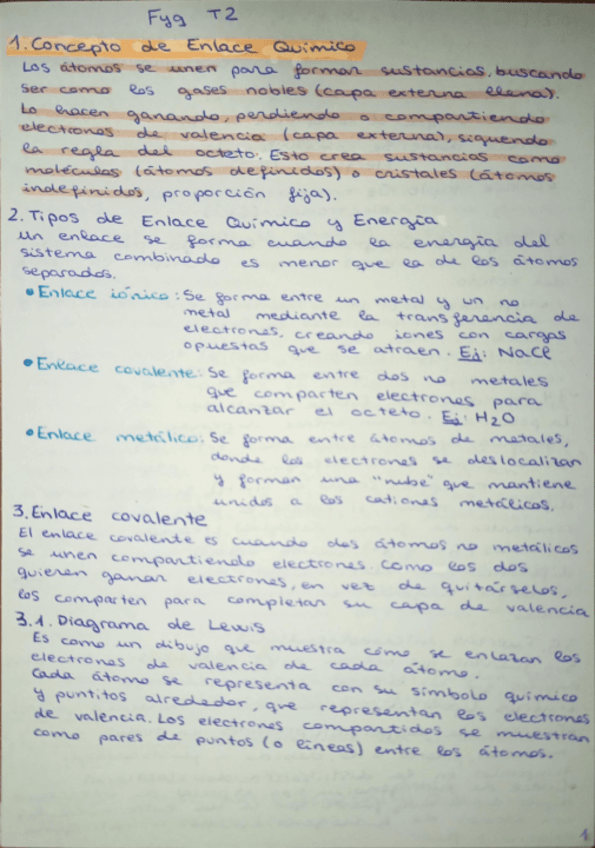 Fyq T2
1. Concepto de Enlace Químico
Los átomos se unen para formar sustancias, buscando
ser como los gases nobles (capa externa llena).
Lo hacen ganando, perdiendo o compartiendo
electrones de valencia (capa externa), siguiendo
la regla del octeto. Esto crea sustancias como
moléculas (átomos definidos) o cristales (átomos
indefinidos, proporción fija).
2. Tipos de Enlace Químico y Energía
Un enlace se forma cuando la energía del
sistema combinado es menor que la de los átomos
separados.
• Enlace iónico: Se forma entre un metal y un no
metal mediante la transferencia de
electrones, creando iones con cargas
opuestas que se atraen. Ej: NaCl
• Enlace covalente: Se forma entre dos no metales
que comparten electrones para
alcanzar el octeto. Ej: H₂O
• Enlace metálico: Se forma entre átomos de metales,
donde los electrones se deslocalizan
y forman una "nube" que mantiene
unidos a los cationes metálicos.
3. Enlace covalente
El enlace covalente es cuando dos átomos no metálicos
se unen compartiendo electrones. Como los dos
quieren ganar electrones, en vez de quitárselos,
los comparten para completar su capa de valencia
3.1. Diagrama de Lewis
Es como un dibujo que muestra cómo se enlazan los
electrones de valencia de cada átomo.
Cada átomo se representa con su símbolo químico
y puntitos alrededor, que representan los electrones
de valencia. Los electrones compartidos se muestran
como pares de puntos (o líneas) entre los átomos.
1